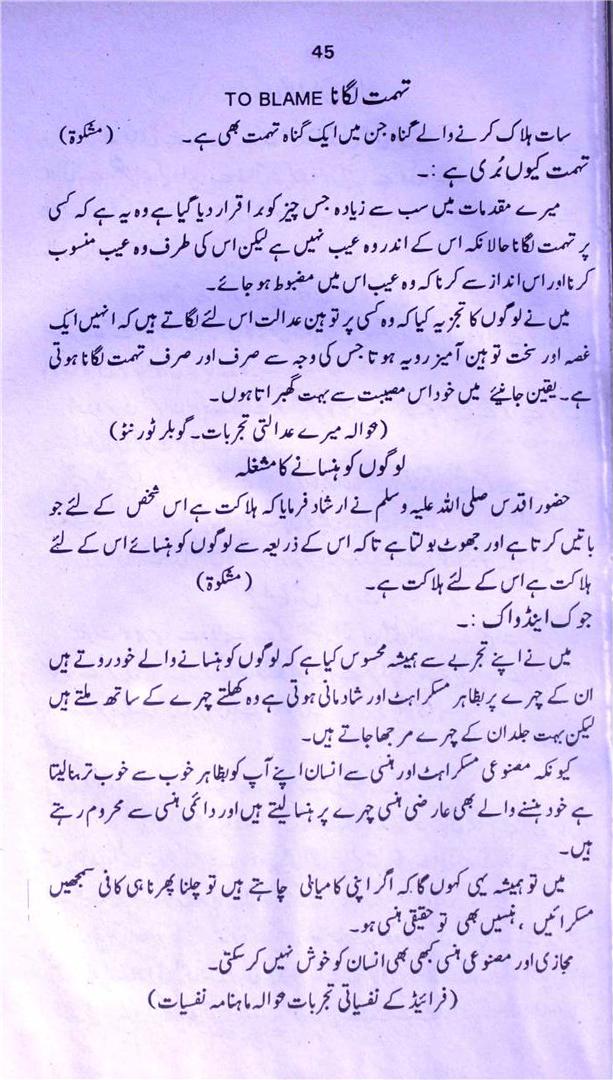 45
تہمت لگانا TO BLAME
سات ہلاک کرنے والے گناہ جن میں ایک گناہ تہمت بھی ہے۔ (مشکوٰۃ)
تہمت کیوں بُری ہے :۔
میرے مقدمات میں سب سے زیادہ جس چیز کو برا قرار دیا گیا ہے وہ یہ ہے کہ کسی
پر تہمت لگانا حالانکہ اس کے اندر وہ عیب نہیں ہے لیکن اس کی طرف وہ عیب منسوب
کرنا اور اس انداز سے کرنا کہ وہ عیب اس میں مضبوط ہو جائے۔
میں نے لوگوں کا تجزیہ کیا کہ وہ کسی پر توہین عدالت اس لئے لگاتے ہیں کہ انہیں ایک
غصہ اور سخت توہین آمیز رویہ ہوتا جس کی وجہ سے صرف اور صرف تہمت لگانا ہوتی
ہے۔ یقین جانیئے میں خود اس مصیبت سے بہت گھبراتا ہوں۔
(حوالہ میرے عدالتی تجربات۔ گوبلر ٹورنٹو)
لوگوں کو ہنسانے کا مشغلہ
حضور اقدس صلی اللہ علیہ وسلم نے ارشاد فرمایا کہ ہلاکت ہے اس شخص کے لئے جو
باتیں کرتا ہے اور جھوٹ بولتا ہے تاکہ اس کے ذریعہ سے لوگوں کو ہنسائے اس کے لئے
ہلاکت ہے اس کے لئے ہلاکت ہے۔ (مشکوٰۃ)
جوک اینڈ واک :۔
میں نے اپنے تجربے سے ہمیشہ محسوس کیا ہے کہ لوگوں کو ہنسانے والے خود روتے ہیں
ان کے چہرے پر بظاہر مسکراہٹ اور شادمانی ہوتی ہے وہ کھلتے چہرے کے ساتھ ملتے ہیں
لیکن بہت جلد ان کے چہرے مرجھا جاتے ہیں۔
کیونکہ مصنوعی مسکراہٹ اور ہنسی سے انسان اپنے آپ کو بظاہر خوب سے خوب تر بنا لیتا
ہے خود ہنسنے والے بھی عارضی ہنسی چہرے پر ہنسا لیتے ہیں اور دائمی ہنسی سے محروم رہتے
ہیں۔
میں تو ہمیشہ یہی کہوں گا کہ اگر اپنی کامیابی چاہتے ہیں تو چلنا پھرنا ہی کافی سمجھیں
مسکرائیں ، ہنسیں بھی تو حقیقی ہنسی ہو۔
مجازی اور مصنوعی ہنسی کبھی بھی انسان کو خوش نہیں کر سکتی۔
(فرائیڈ کے نفسیاتی تجربات حوالہ ماہنامہ نفسیات)